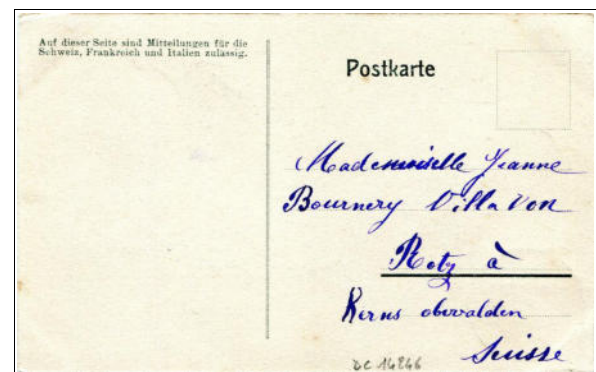 Auf dieser Seite sind Mitteilungen für die
Schweiz, Frankreich und Italien zulässig.
Postkarte
Mademoiselle Jeanne
Bournery Villa Von
Rotz à
Kerns obwalden
Suisse
DC 14846